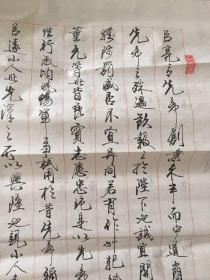 臣亮言先帝創業未半而中道崩
先帝之殊遇欲報之於陛下也誠宜開
體陟罰臧否不宜異同若有作奸犯
董允等此皆良實志慮忠純是以先帝
性行淑均曉暢軍事試用於昔先帝稱
臣遠小人此先漢之所以興隆也親小人